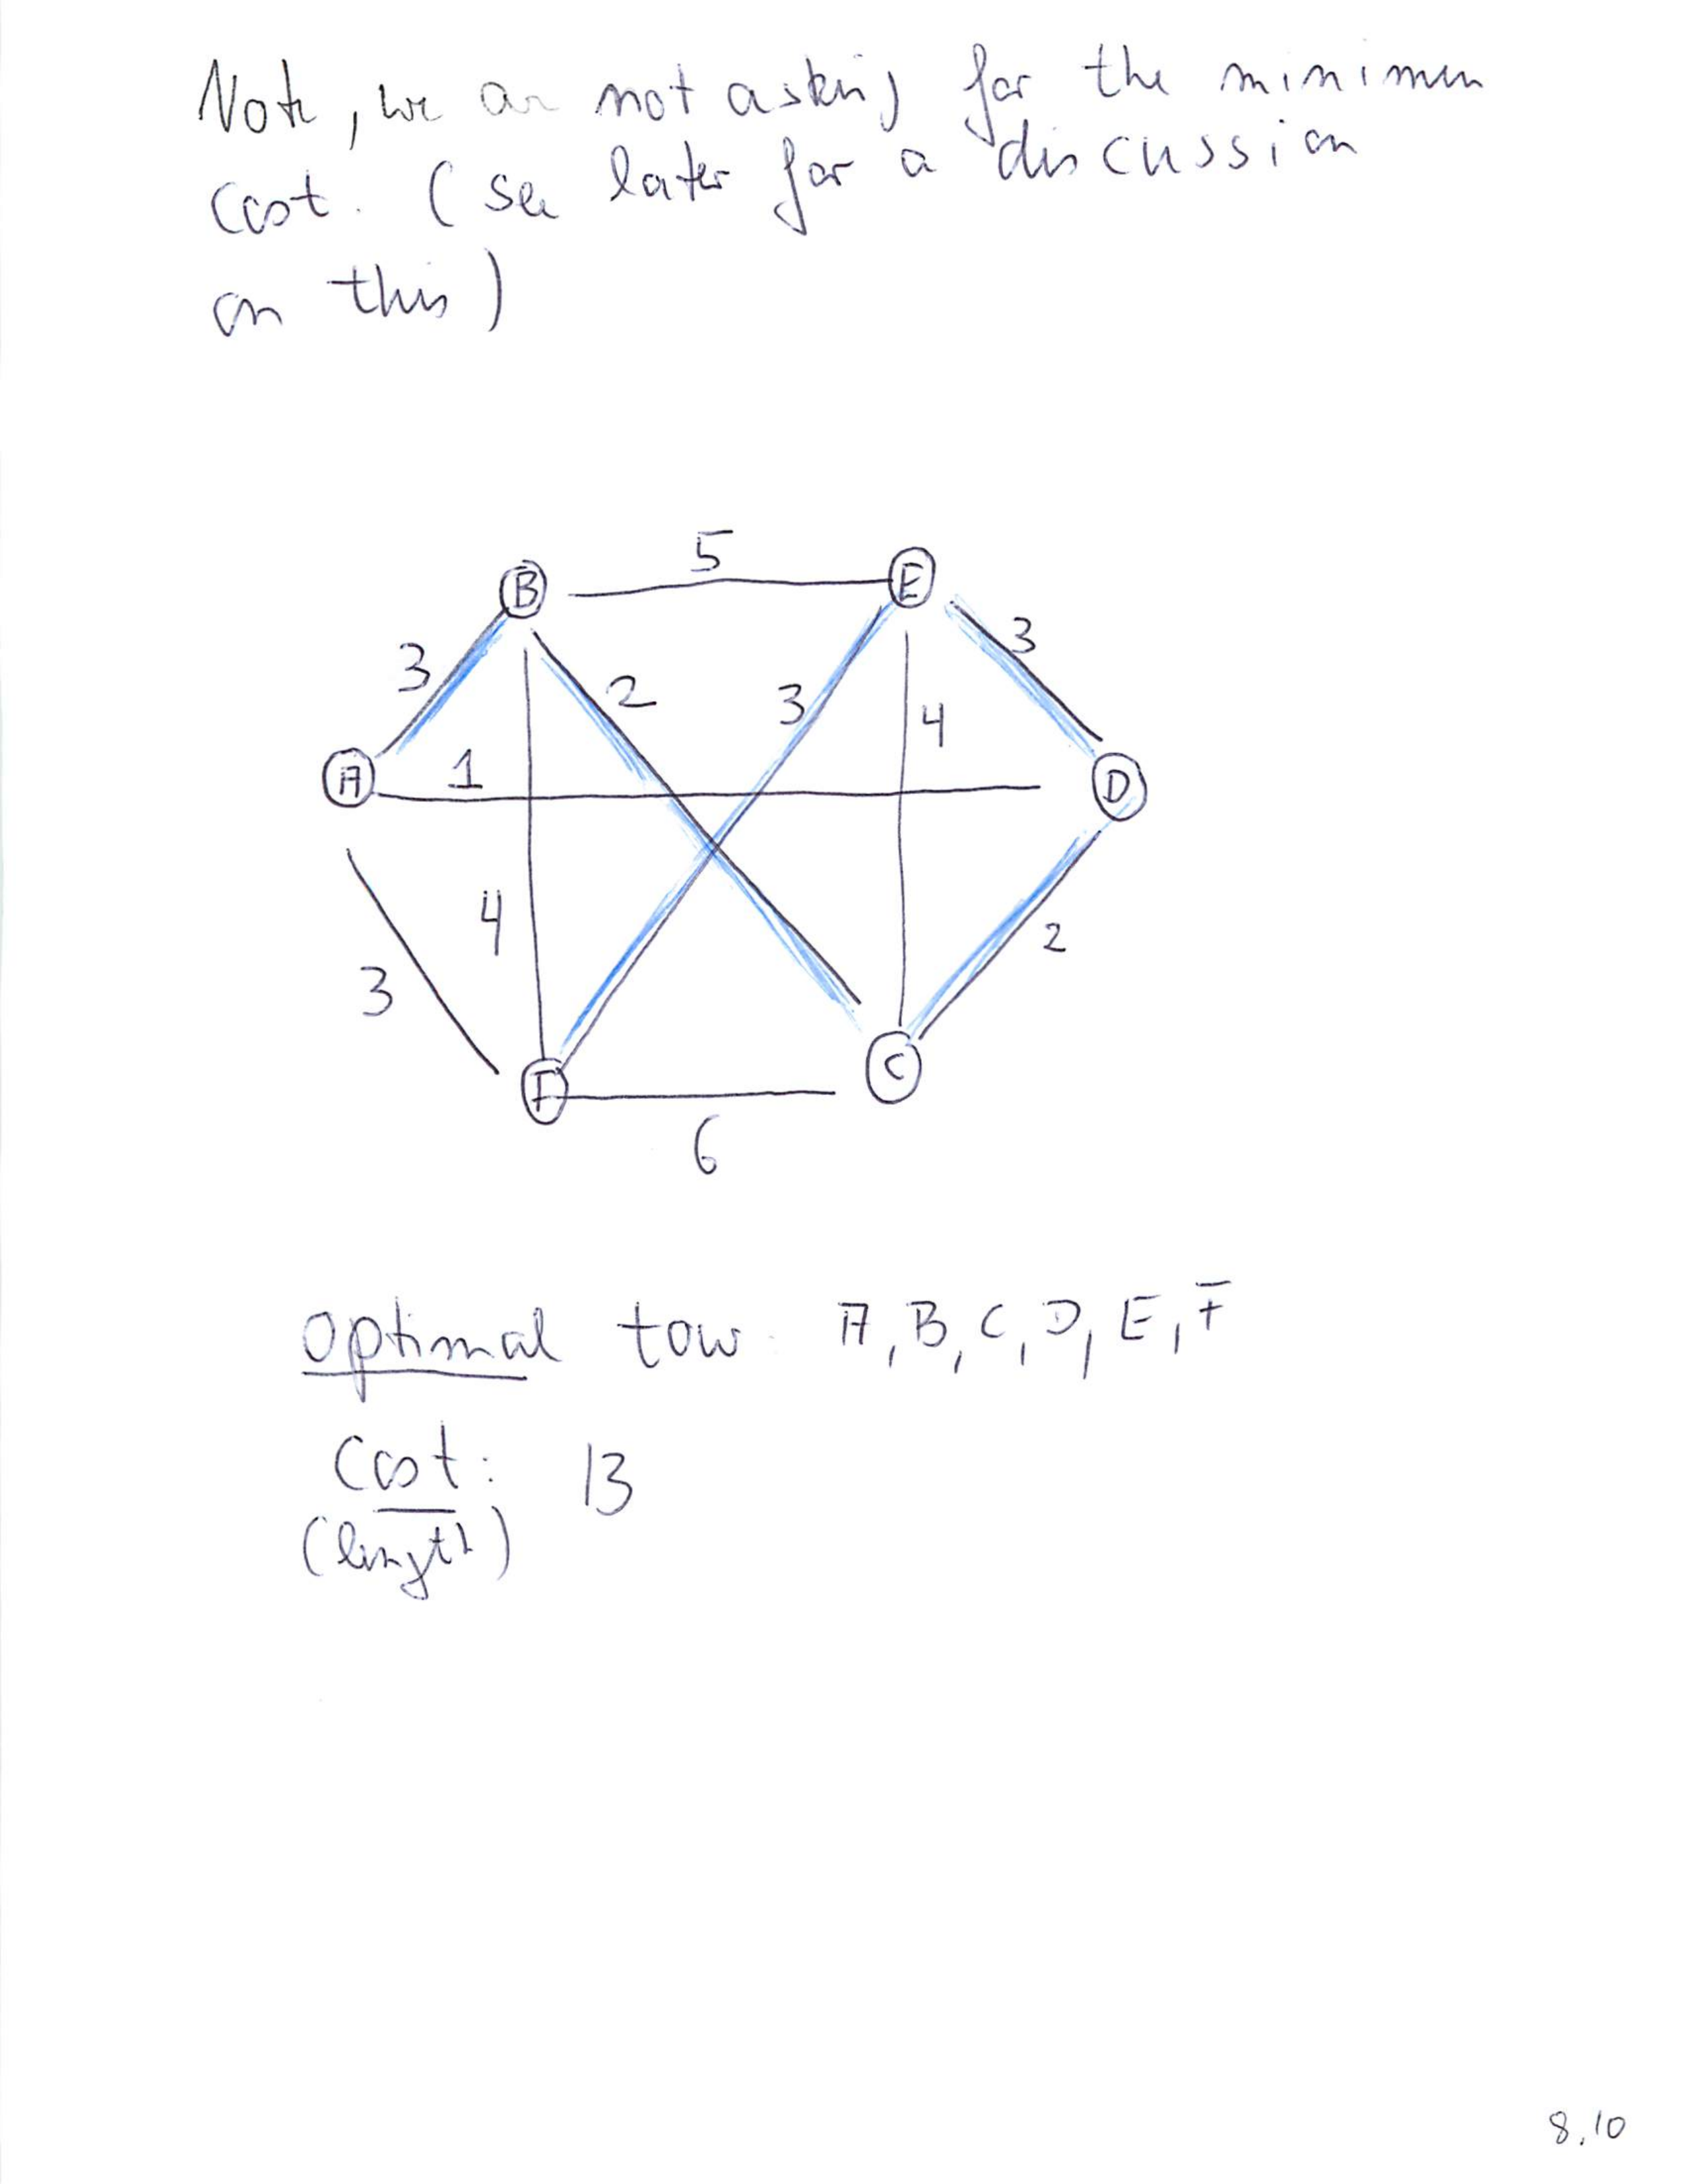 Note, we are not asking for the minimum
cost. (see later for a discussion
on this)
5
B
E
3
3
2
3
4
A
1
D
4
3
2
F
C
6
Optimal tour: A, B, C, D, E, F
Cost: 13
(length)
8.10